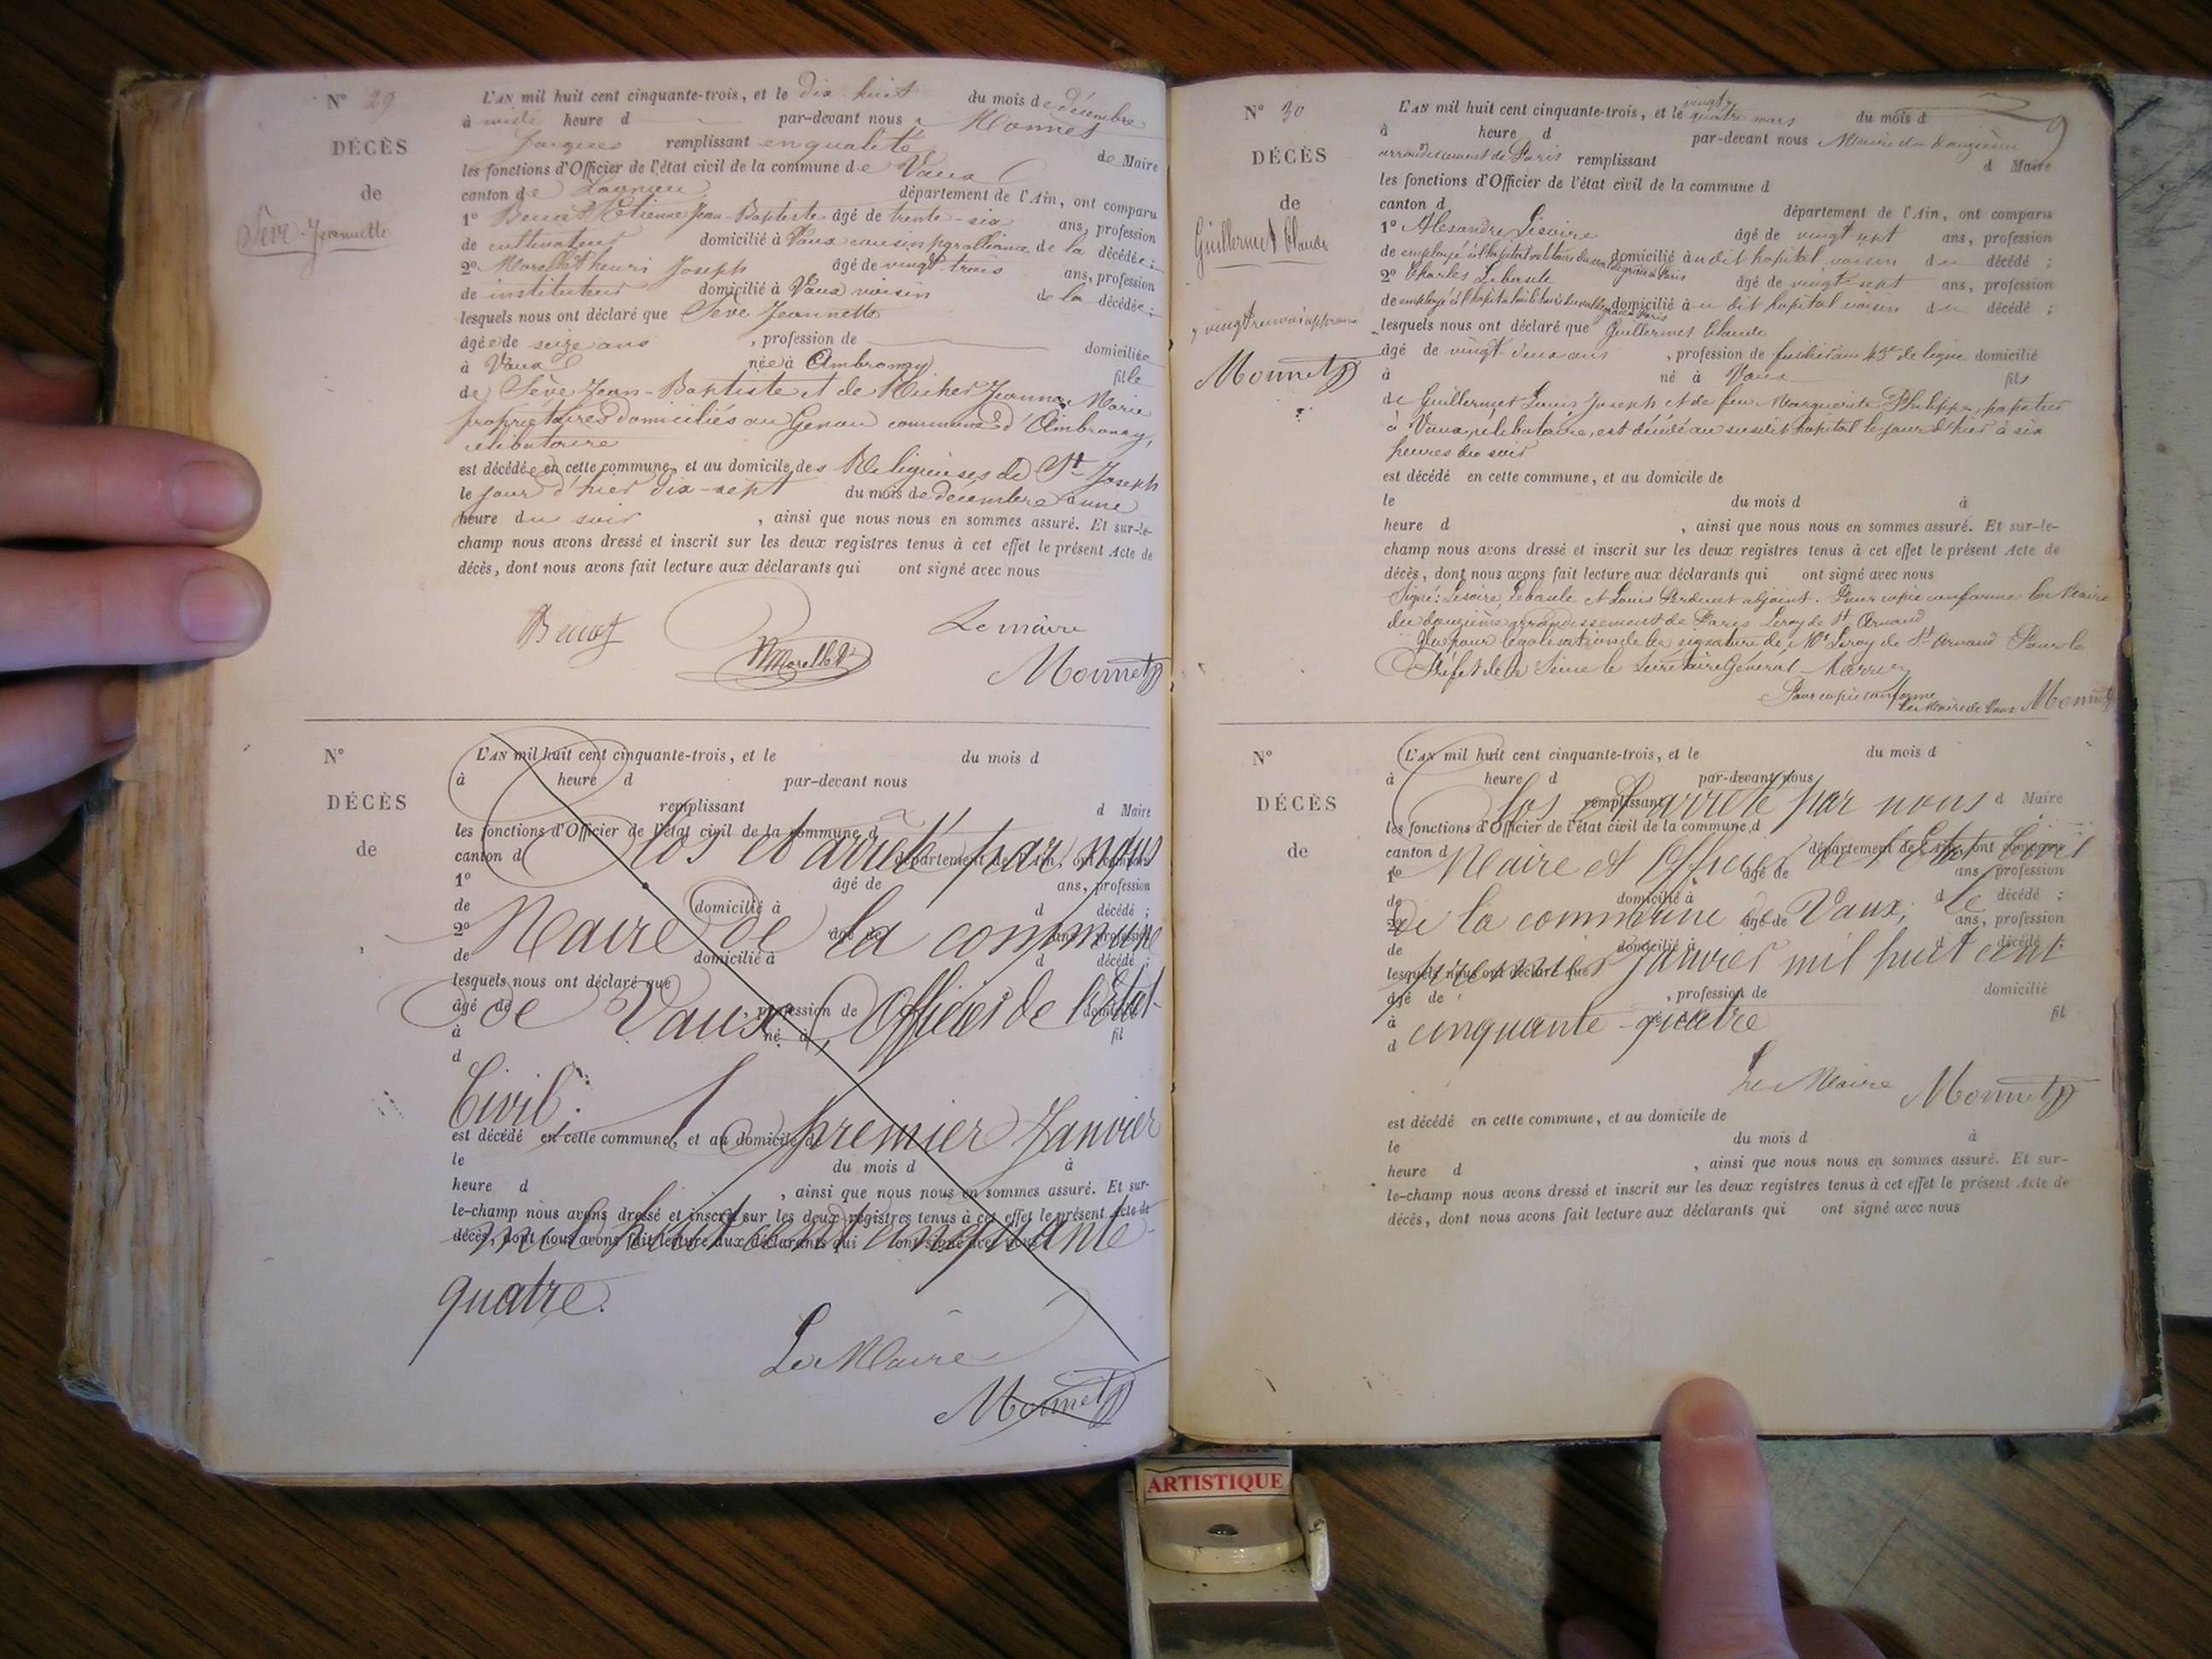 N° 29
DÉCÈS
de
Sève Jeannette
L'AN mil huit cent cinquante-trois, et le dix huit du mois de décembre
à midi heure d par-devant nous Monnet
remplissant en qualité de Maire
les fonctions d'Officier de l'état civil de la commune de Vaux
canton de Lagnieu département de l'Ain, ont comparu
1° Benoit Etienne Jean-Baptiste âgé de trente-six ans, profession
de cultivateur domicilié à Vaux cousin par alliance de la décédée ;
2° Morellet henri Joseph âgé de vingt trois ans, profession
de instituteur domicilié à Vaux voisin de la décédée ;
lesquels nous ont déclaré que Sève Jeannette
âgée de seize ans , profession de domiciliée
à Vaux née à Ambronay fille
de Sève Jean-Baptiste et de Jeanne Marie
propriétaires domiciliés au Genou commune d'Ambronay,
célibataire
est décédée en cette commune, et au domicile des Religieuses de St Joseph
le jour d'hier dix-sept du mois de décembre à une
heure du soir , ainsi que nous nous en sommes assuré. Et sur-le-
champ nous avons dressé et inscrit sur les deux registres tenus à cet effet le présent Acte de
décès, dont nous avons fait lecture aux déclarants qui ont signé avec nous
Benoit Morellet Le maire
Monnet
N°
DÉCÈS
de
L'AN mil huit cent cinquante-trois, et le du mois d
à heure d par-devant nous
remplissant d Maire
les fonctions d'Officier de l'état civil de la commune d
canton d département de l'Ain, ont comparu
Clos et arrêté par nous
1° âgé de ans, profession
de domicilié à d décédé ;
2° âgé de ans, profession
Maire de la commune
de domicilié à d décédé ;
lesquels nous ont déclaré que
âgé de , profession de domicilié
de Vaux, Officier de l'Etat
à né à fil
d
Civil, premier Janvier
est décédé en cette commune, et au domicile d
le du mois d à
heure d , ainsi que nous nous en sommes assuré. Et sur-
le-champ nous avons dressé et inscrit sur les deux registres tenus à cet effet le présent Acte de
décès, dont nous avons fait lecture aux déclarants qui ont signé avec nous
mil huit cent cinquante-
quatre.
Le Maire
Monnet
N° 30
DÉCÈS
de
Guillermet Claude
Monnet
L'AN mil huit cent cinquante-trois, et le vingt quatre mars du mois d
à heure d par-devant nous Maire du douzième
arrondissement de Paris remplissant d Maire
les fonctions d'Officier de l'état civil de la commune d
canton d département de l'Ain, ont comparu
1° Alexandre Lesoire âgé de vingt sept ans, profession
de employé à l'hôpital militaire du val de grâce à Paris domicilié au dit hopital voisin du décédé ;
2° Charles Lebaule âgé de vingt sept ans, profession
de employé à l'hôpital militaire du val de grâce à Paris domicilié au dit hopital voisin du décédé ;
lesquels nous ont déclaré que Guillermet Claude
âgé de vingt-deux ans , profession de fusilier au de ligne domicilié
à né à Vaux fils
de Guillermet Louis Joseph et de feu Marguerite Philippe,
à Vaux, célibataire, est décédé au susdit hopital le jour d'hier à six
heures du soir
est décédé en cette commune, et au domicile de
le du mois d à
heure d , ainsi que nous nous en sommes assuré. Et sur-le-
champ nous avons dressé et inscrit sur les deux registres tenus à cet effet le présent Acte de
décès, dont nous avons fait lecture aux déclarants qui ont signé avec nous
Signé : Lesoire, Lebaule et Louis adjoint. Pour copie conforme le Maire
du douzième arrondissement de Paris Leroy de St Arnaud
Vu pour légalisation de la signature de Mr Leroy de St Arnaud Pour le
Préfet de la Seine le Secrétaire Général
Pour copie conforme
Le Maire de Vaux Monnet
N°
DÉCÈS
de
L'AN mil huit cent cinquante-trois, et le du mois d
à heure d par-devant nous
remplissant d Maire
Clos et arrêté par nous
les fonctions d'Officier de l'état civil de la commune d
canton d département de l'Ain, ont comparu
Maire et Officier de l'Etat Civil
1° âgé de ans, profession
de domicilié à d décédé ;
de la commune de Vaux, le
2° âgé de ans, profession
de domicilié à d décédé ;
premier Janvier mil huit cent
lesquels nous ont déclaré que
âgé de , profession de domicilié
à né à fil
cinquante-quatre
d
Le Maire Monnet
est décédé en cette commune, et au domicile de
le du mois d à
heure d , ainsi que nous nous en sommes assuré. Et sur-
le-champ nous avons dressé et inscrit sur les deux registres tenus à cet effet le présent Acte de
décès, dont nous avons fait lecture aux déclarants qui ont signé avec nous
ARTISTIQUE